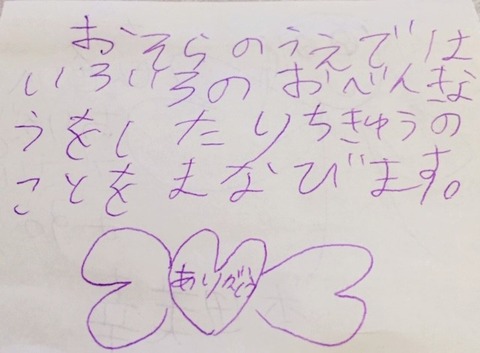 おそらのうえでは
いろいろのおべんきょ
うをしたりちきゅうの
ことをまなびます。
ありがとう